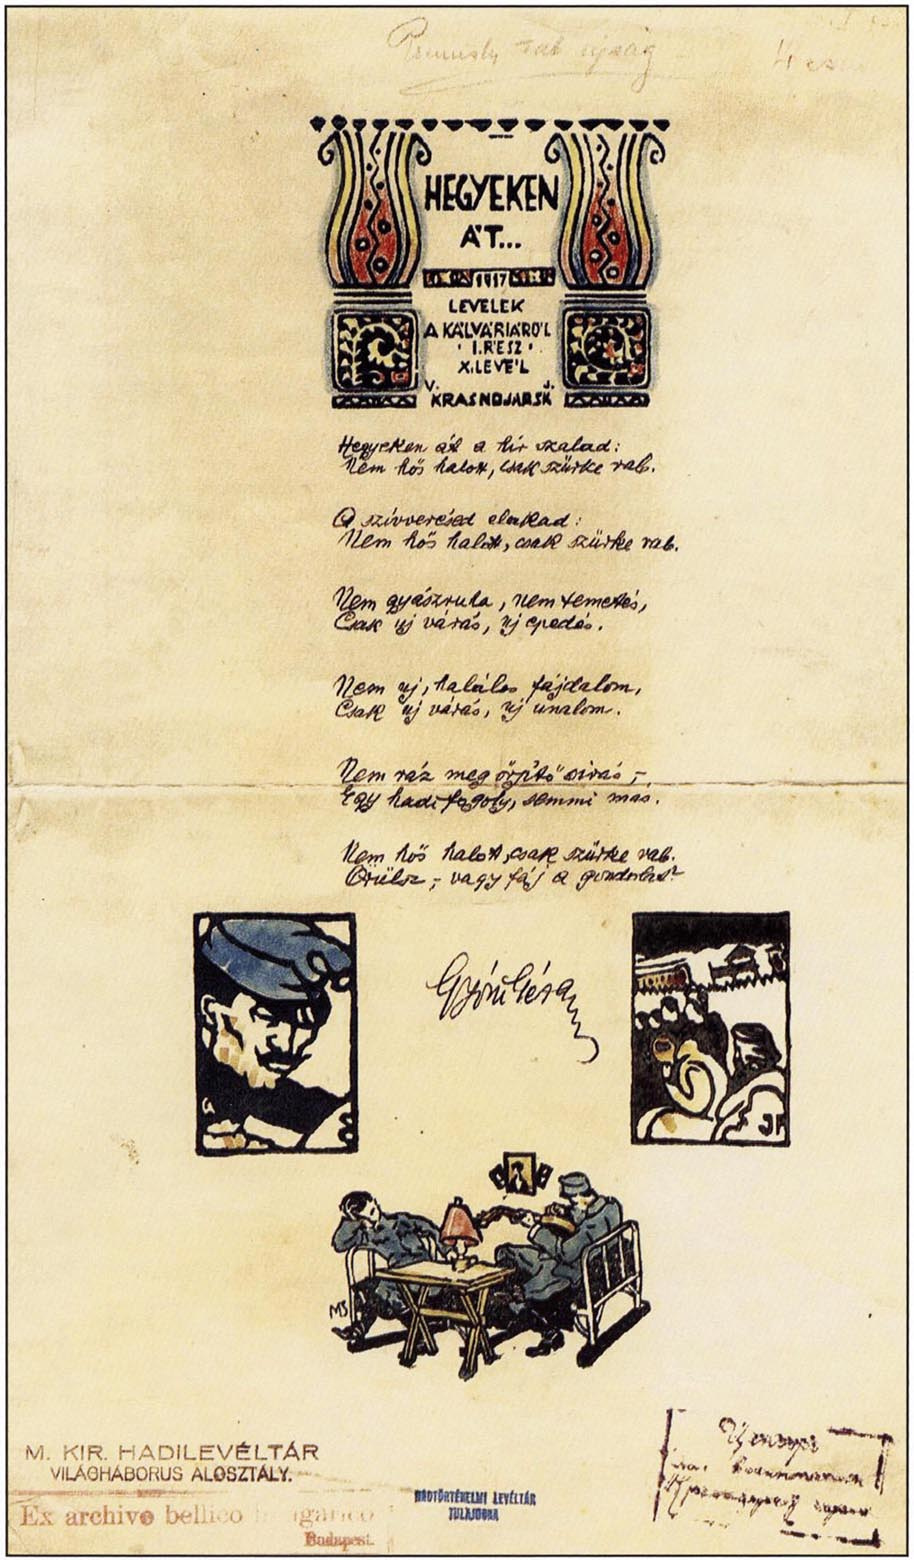 rab ujság
HEGYEKEN
ÁT...
1917
LEVELEK
A KÁLVÁRIÁRÓL
· I. RÉSZ ·
X. LEVÉL
V. J.
KRASNOJARSK
Hegyeken át a hír szalad:
Nem hős halott, csak szürke rab.
A szívverésed elakad:
Nem hős halott, csak szürke rab.
Nem gyászruha, nem temetés,
Csak uj várás, uj epedés.
Nem uj, halálos fájdalom,
Csak uj várás, uj unalom.
Nem ráz meg őrjítő sirás, -
Egy hadifogoly, semmi más.
Nem hős halott, csak szürke rab.
Örülsz, - vagy fáj a gondolat?
Gyóni Géza
MS
M. KIR. HADILEVÉLTÁR
VILÁGHÁBORUS ALOSZTÁLY.
Ex archivo bellico hungarico
Budapest.
HADTÖRTÉNELMI LEVÉLTÁR
TULAJDONA